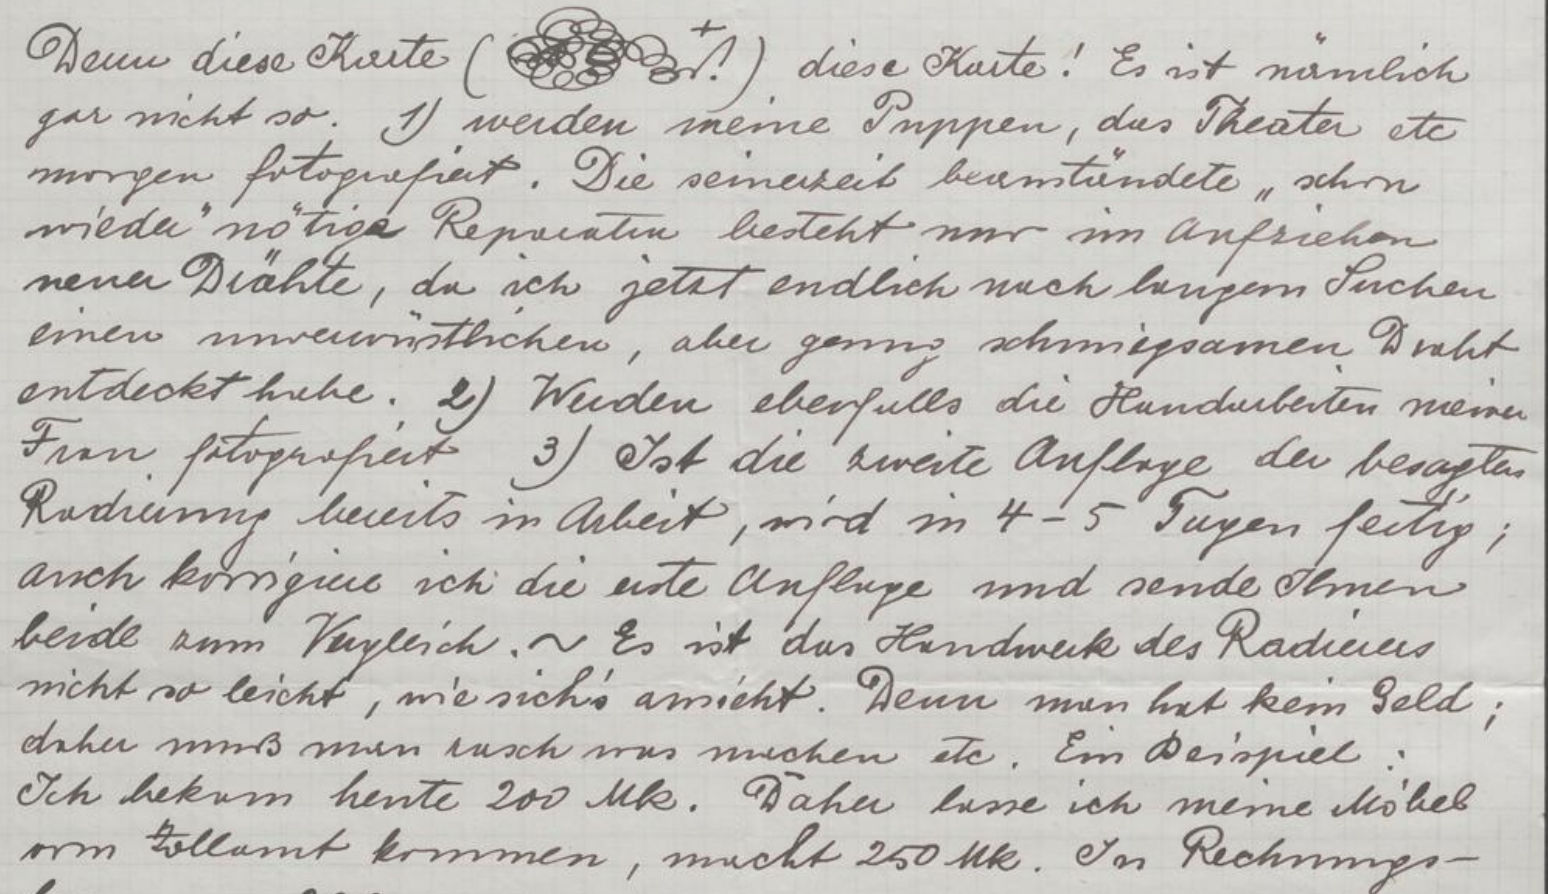 Denn diese Karte ( +!) diese Karte! Es ist nämlich
gar nicht so. 1) werden meine Puppen, das Theater etc
morgen fotografiert. Die seinerzeit beanständete „schon
wieder" nötige Reparatur besteht nur im Aufziehen
neuer Drähte, da ich jetzt endlich nach langem Suchen
einen unverwüstlichen, aber genug schmiegsamen Draht
entdeckt habe. 2) Werden ebenfalls die Handarbeiten meiner
Frau fotografiert 3) Ist die zweite Auflage der besagten
Radierung bereits in Arbeit, wird in 4–5 Tagen fertig;
auch korrigiere ich die erste Auflage und sende Ihnen
beide zum Vergleich. ~ Es ist das Handwerk des Radierers
nicht so leicht, wie sich's ansieht. Denn man hat kein Geld;
daher muß man rasch was machen etc. Ein Beispiel:
Ich bekam heute 200 Mk. Daher lasse ich meine Möbel
vom Zollamt kommen, macht 250 Mk. In Rechnungs-